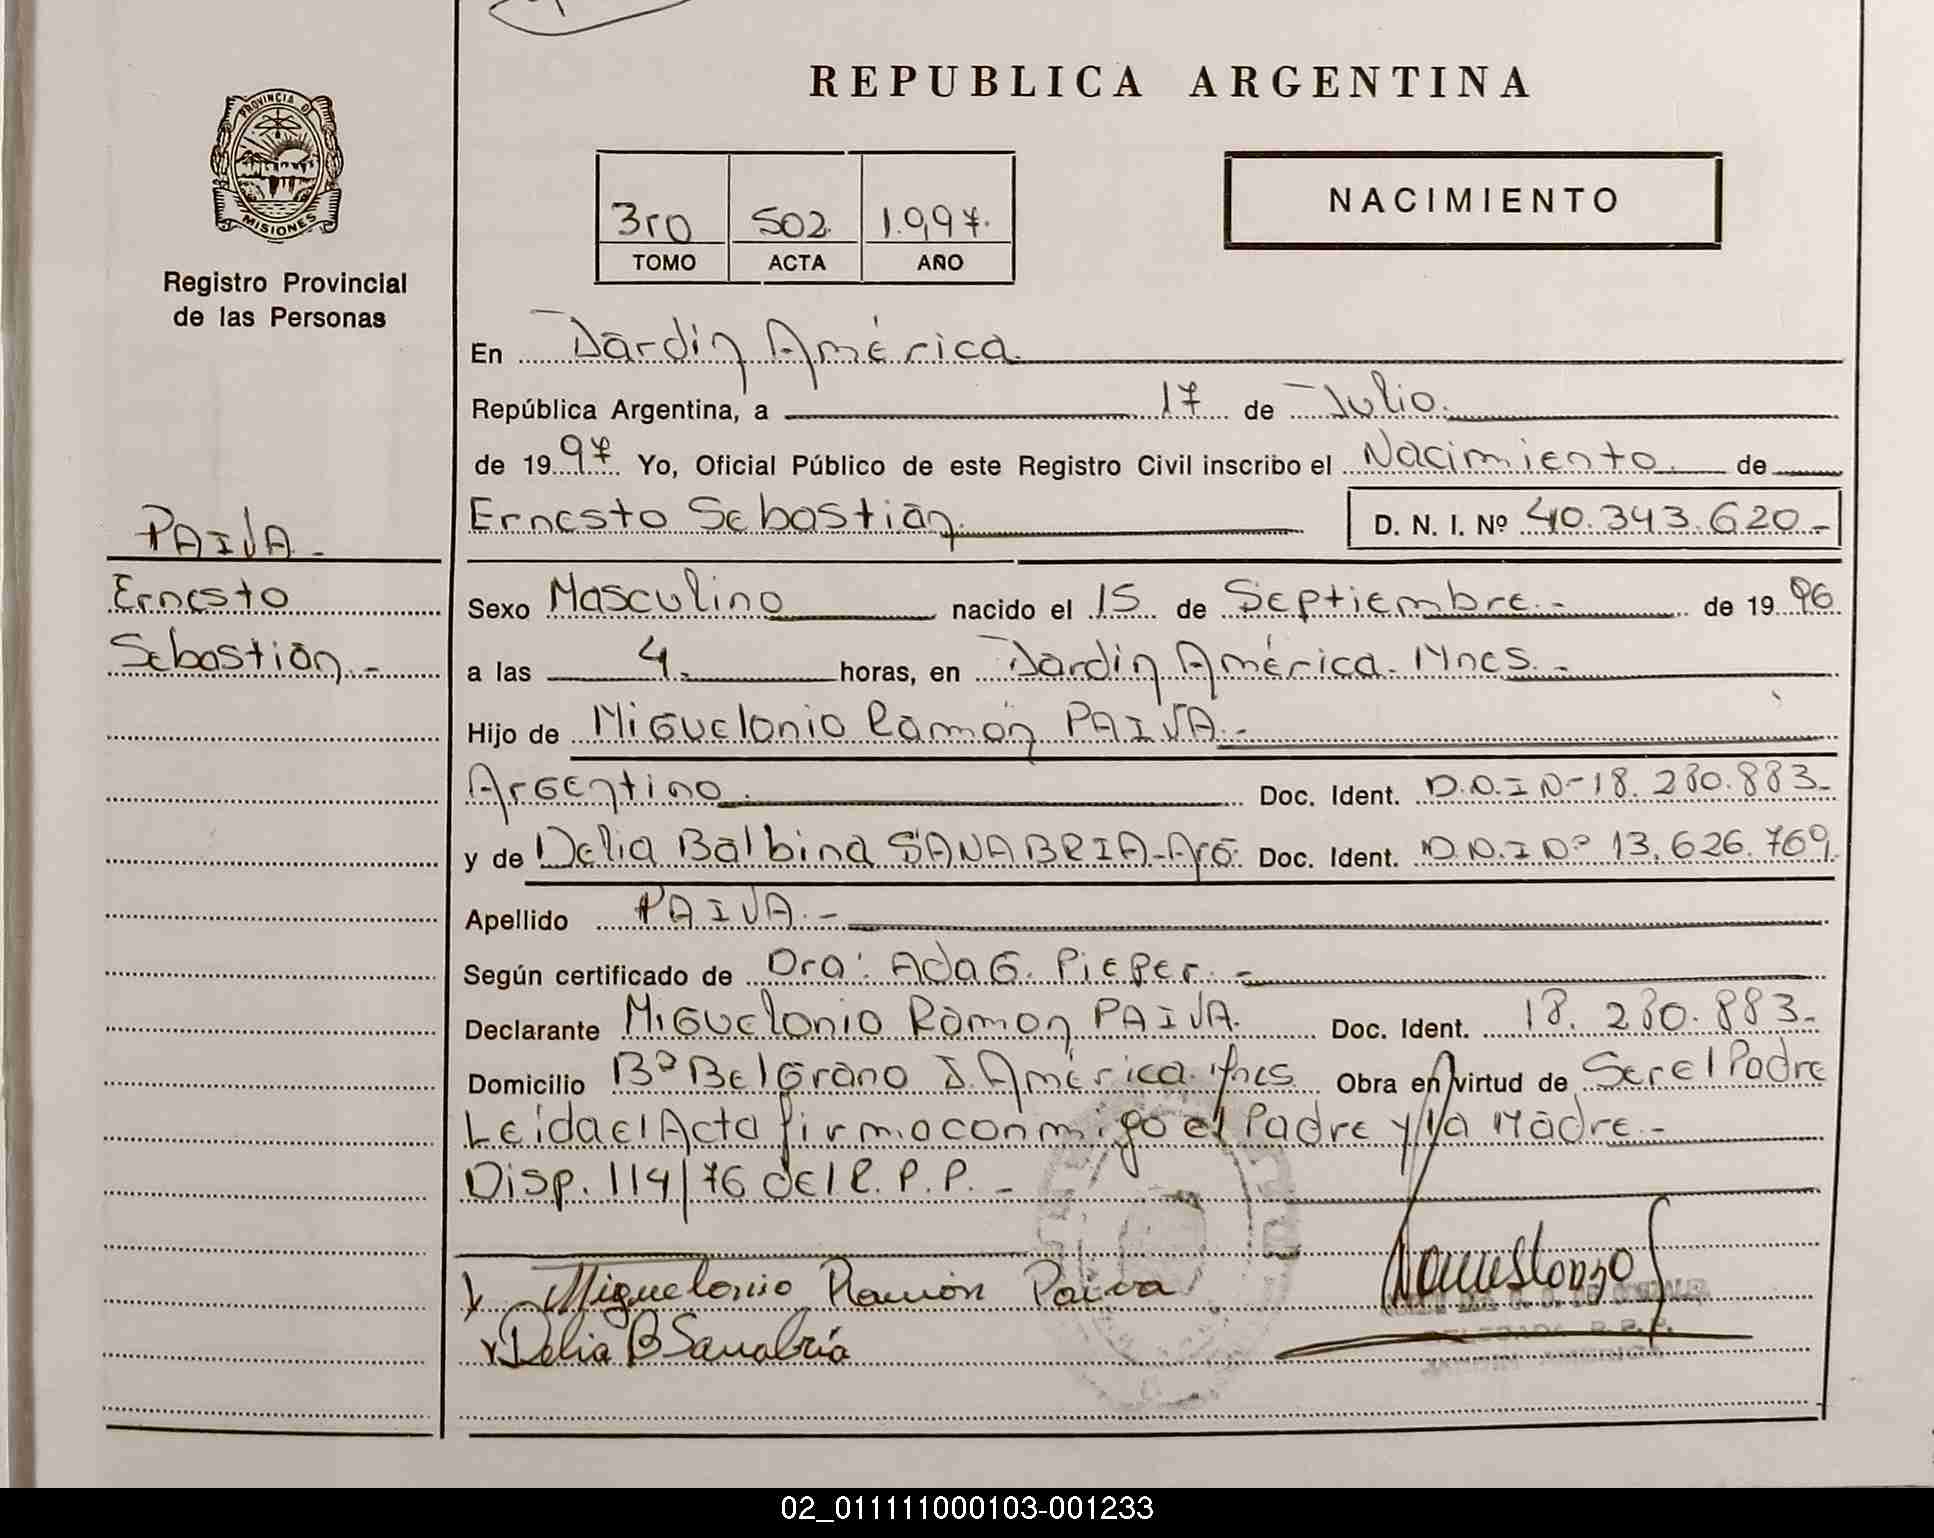 REPUBLICA ARGENTINA
PROVINCIA DE
MISIONES
Registro Provincial
de las Personas
3ro 502 1.997.
TOMO ACTA AÑO
NACIMIENTO
En Jardín América
República Argentina, a 17 de Julio.
de 1997 Yo, Oficial Público de este Registro Civil inscribo el Nacimiento de
Ernesto Sebastián. D. N. I. Nº 40.343.620-
PAIVA-
Ernesto
Sebastián.-
Sexo Masculino nacido el 15 de Septiembre.- de 1996
a las 4. horas, en Jardín América. Mnes.-
Hijo de Miguelonio Ramón PAIVA.-
Argentino. Doc. Ident. D.N.I Nº 18.280.883-
y de Delia Balbina SANABRIA-Arg. Doc. Ident. D.N.I Nº 13.626.769.
Apellido PAIVA.-
Según certificado de Dra: Ada G. Pieper.-
Declarante Miguelonio Ramón PAIVA. Doc. Ident. 18.280.883-
Domicilio Bº Belgrano J. América. Mnes Obra en virtud de Ser el Padre
Leída el Acta firma conmigo el Padre y la Madre.-
Disp. 114/76 del R.P.P.-
Miguelonio Ramón Paiva
Delia B Sanabria
02_011111000103-001233